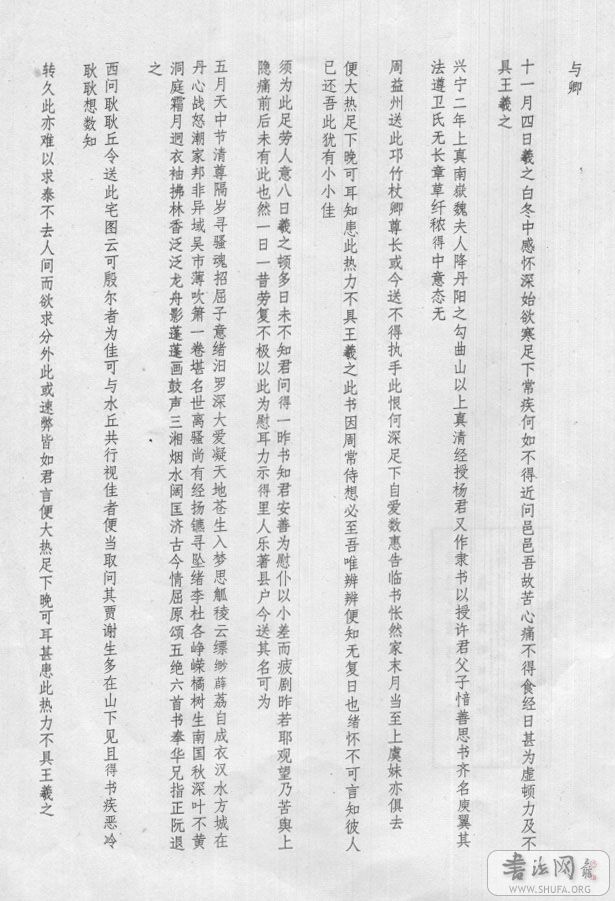 与卿
十一月四日羲之白冬中感怀深始欲寒足下常疾何如不得近问邑邑吾故苦心痛不得食经日甚为虚顿力及不
具王羲之
兴宁二年上真南嶽魏夫人降丹阳之勾曲山以上真清经授杨君又作隶书以授许君父子愔善思书齐名庾翼其
法遵卫氏无长章草纤秾得中意态无
周益州送此邛竹杖卿尊长或今送不得执手此恨何深足下自爱数惠告临书怅然家末月当至上虞妹亦俱去
便大热足下晚可耳知患此热力不具王羲之此书因周常侍想必至吾唯辨辨便知无复日也绪怀不可言知彼人
已还吾此犹有小小佳
须为此足劳人意八日羲之顿多日未不知君问得一昨书知君安善为慰仆以小差而疲剧昨若耶观望乃苦舆上
隐痛前后未有此也然一日一昔劳复不极以此为慰耳力示得里人乐著县户今送其名可为
五月天中节清尊隔岁寻骚魂招屈子意绪汨罗深大爱凝天地苍生入梦思觚稜云缥缈薜荔自成衣汉水方城在
丹心战怒潮家邦非异域吴市薄吹箫一卷堪名世离骚尚有经扬镳寻坠绪李杜各峥嵘橘树生南国秋深叶不黄
洞庭霜月迥衣袖拂林香泛泛龙舟影蓬蓬画鼓声三湘烟水阔匡济古今情屈原颂五绝六首书奉华兄指正阮退
之
西问耿耿丘令送此宅图云可殷尔者为佳可与水丘共行视佳者便当取问其贾谢生多在山下见且得书疾恶冷
耿耿想数知
转久此亦难以求泰不去人间而欲求分外此或速弊皆如君言便大热足下晚可耳甚患此热力不具王羲之
书法网
WWW.SHUFA.ORG